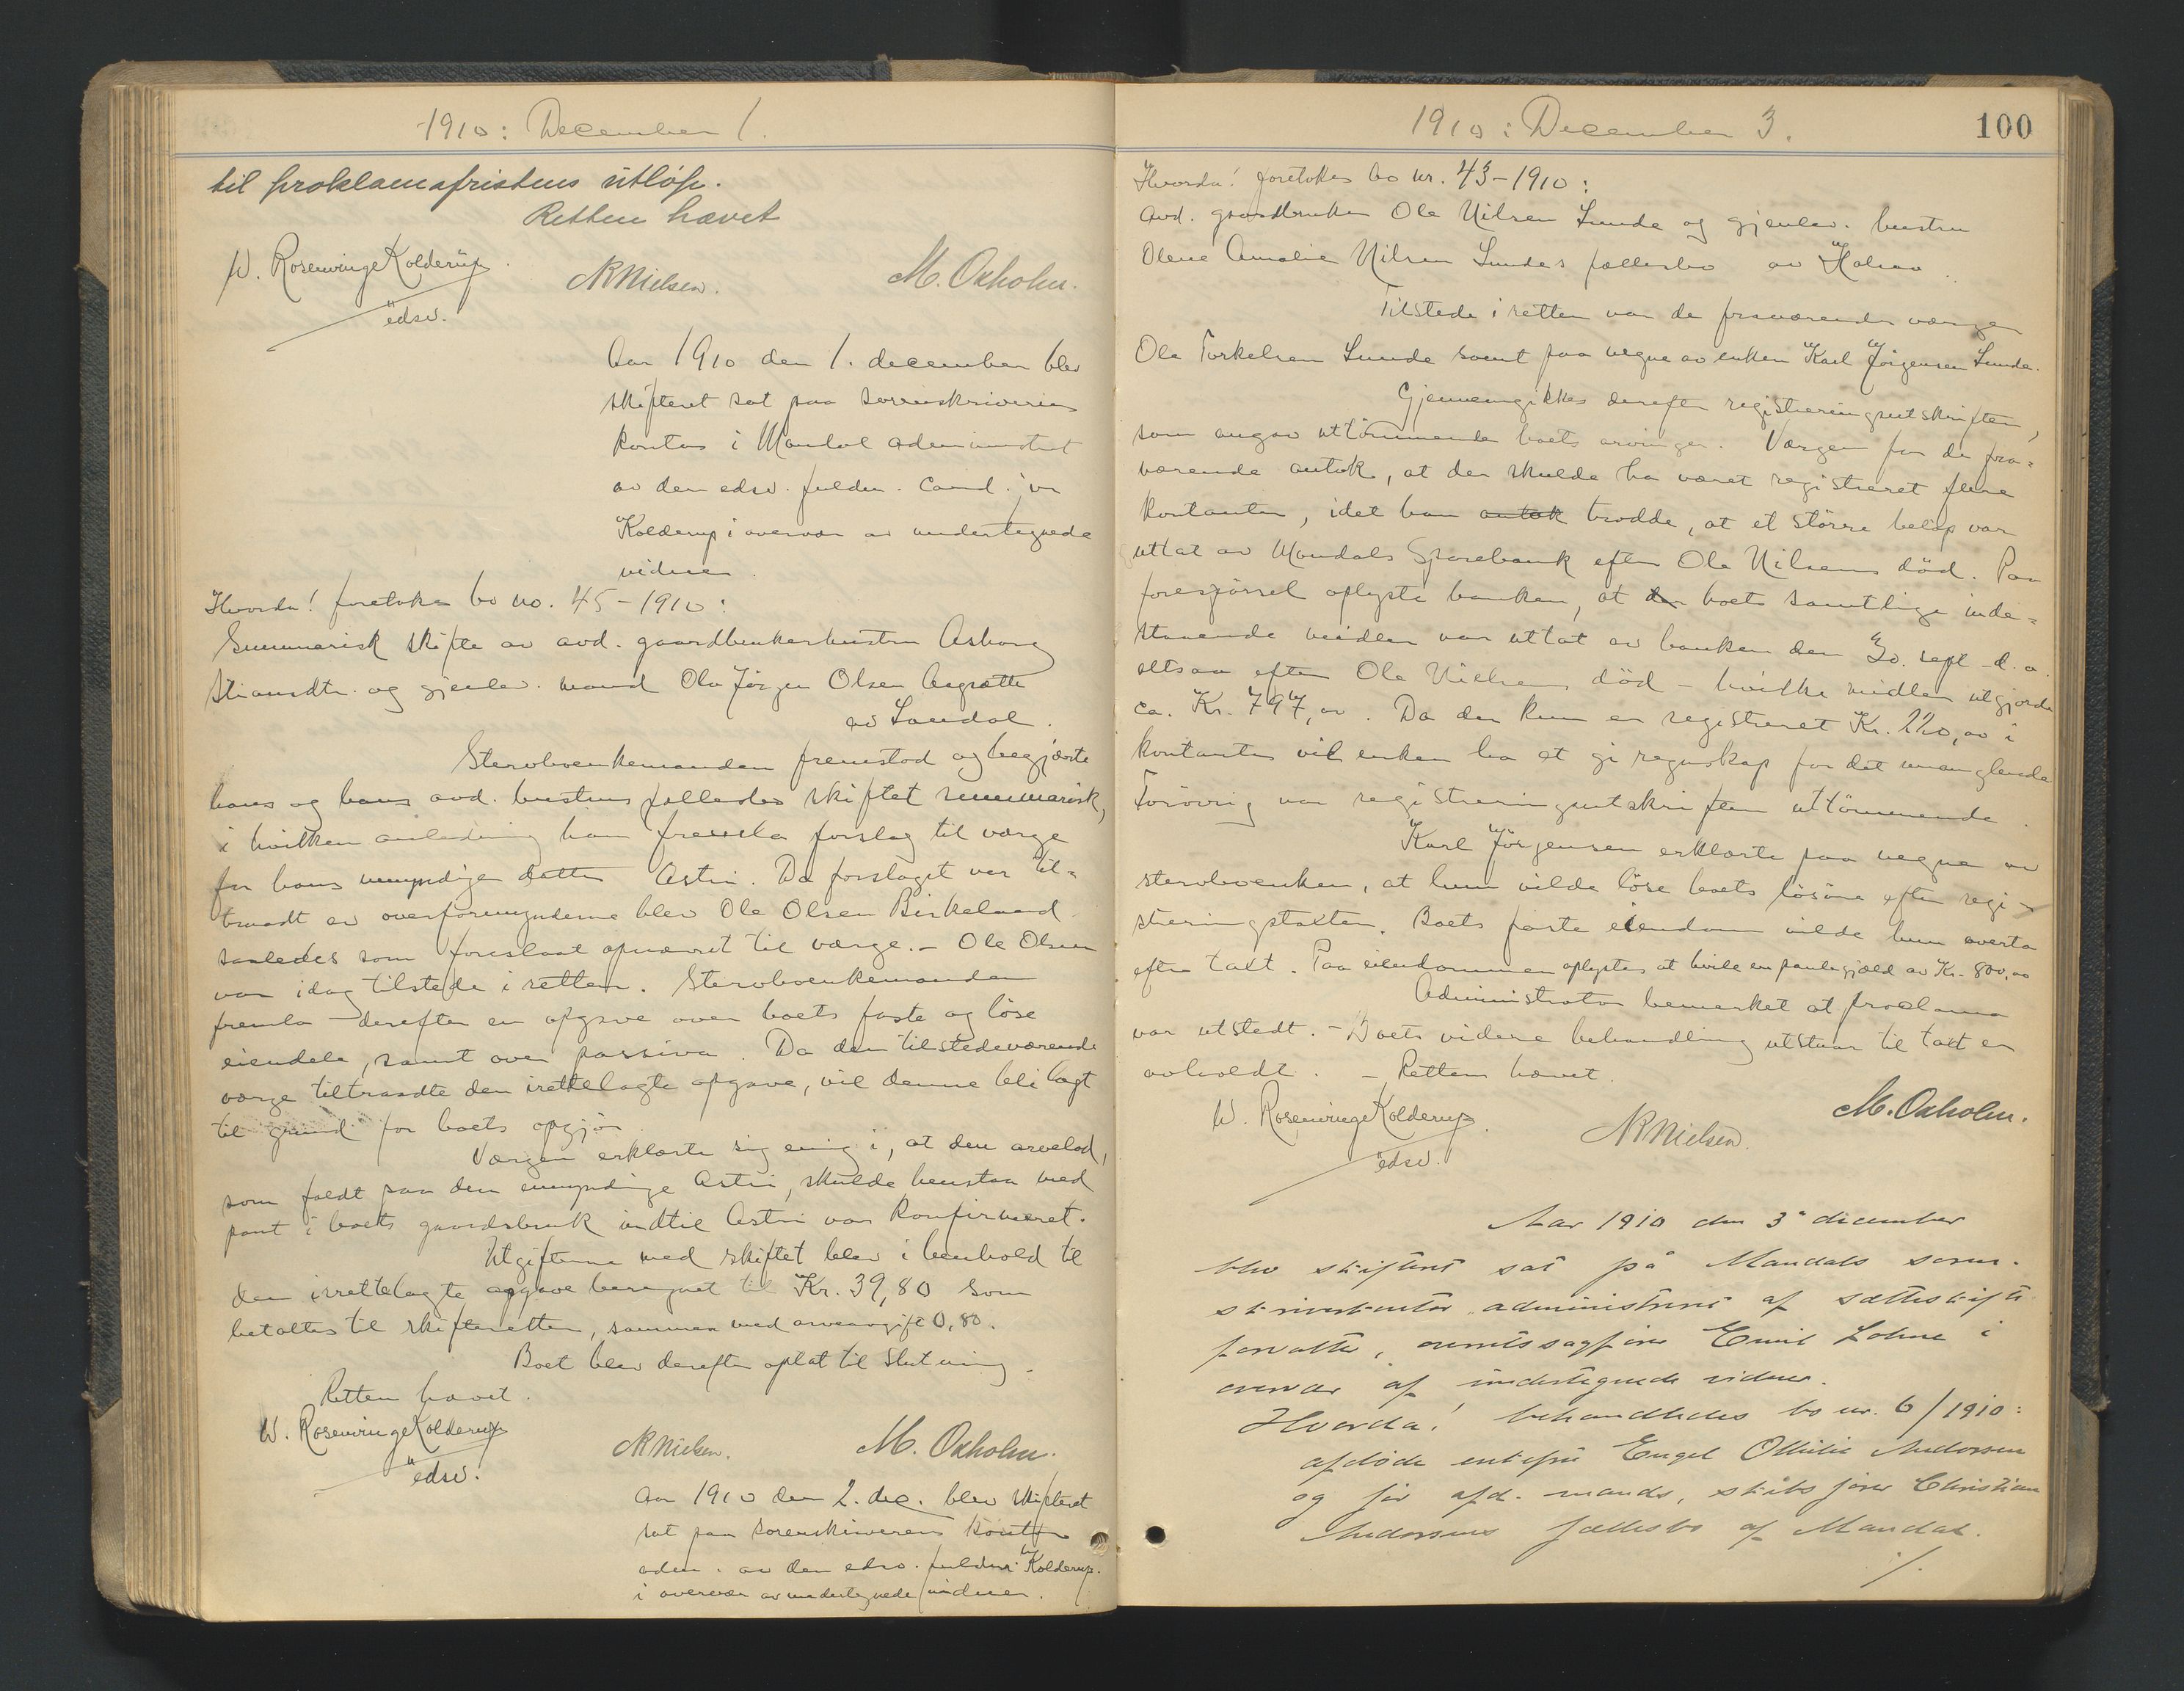 1910: December 1.
til proklamafristens utløp.
Retten hævet
W. Rosenvinge Kolderup
edsv.
NRNielsen.
M. Oxholm.
Aar 1910 den 1. december blev
skifteret sat paa sorenskriverens
kontor i Mandal administrert
av den edsv. fuldm. cand. jur
Kolderup i overvær av undertegnede
vidner.
Hvorda! foretokes bo no. 45-1910:
Summarisk skifte av avd. gaardbrukerhustru Asborg
og gjenlev. mand Ola Jørgen Olsen
av Laudal.
Stervboenkemanden fremstod og begjærte
hans og hans avd. hustrus fællesbo skiftet summarisk,
i hvilken anledning han fremla forslag til værge
for hans umyndige datter Astri. Da forslaget var til-
traadt av overformynderne blev Ole Olsen Birkeland
saaledes som foreslaat opnævnt til værge. - Ole Olsen
var idag tilstede i retten. Stervboenkemanden
fremla derefter en opgave over boets faste og løse
eiendele, samt over passiva. Da den tilstedeværende
værge tiltraadte den irettelagte opgave, vil denne bli lagt
til grund for boets opgjør
Værgen erklærte sig enig i, at den arvelod,
som faldt paa den umyndige Astri, skulde henstaa med
pant i boets gaardsbruk indtil Astri var konfirmeret.
Utgifterne med skiftet blev i henhold til
den irettelagte opgave beregnet til Kr. 39,80 som
betaltes til skifteretten, sammen med arveavgift 0,80.
Boet blev derefter oplat til slutning.
Retten hævet.
W. Rosenvinge Kolderup
edsv.
NRNielsen.
M. Oxholm.
Aar 1910 den 2. dec. blev skifteret
sat paa sorenskriverens kontor
adm. av den edsv. fuldm. Kolderup.
i overvær av undertegnede vidner.
1910: December 3.
100
Hvorda! foretokes bo nr. 43-1910:
Avd. gaardbruker Ole Nilsen Lunde og gjenlev. hustru
Olene Amalie Nilsen Lundes fællesbo av Halsaa.
Tilstede i retten var de fraværendes værge
Ole Torkelsen Lunde samt paa vegne av enken Karl Jørgensen Lunde.
Gjennemgikkes derefter registreringsutskriften,
som angav uttömmende boets arvinger. Værgen for de fra-
værende antok, at der skulde ha været registreret flere
kontanter, idet han antok trodde, at et större beløp var
uttat av Mandals Sparebank efter Ole Nilsens död. Paa
forespørsel oplyste banken, at den boets samtlige inde-
staaende midler var uttat av banken den 30. sept. d.a.
altsaa efter Ole Nielsens död - hvilke midler utgjorde
ca. Kr. 797,00. Da der kun er registreret Kr. 220,00 i
kontanter vil enken ha at gi regnskap for det manglende
Forövrig var registreringsutskriften uttömmende.
Karl Jörgensen erklærte paa vegne av
stervboenken, at hun vilde löse boets lösöre efter regi-
streringstaxten. Boets faste eiendom vilde hun overta
efter taxt. Paa eiendommen oplystes at hvile en pantegjæld av Kr. 800,00
Administrator bemerket at proclama
var utstedt. - Boets videre behandling utstaar til taxt er
avholdt. - Retten hævet.
W. Rosenvinge Kolderup.
edsv.
NRNielsen
M. Oxholm.
Aar 1910 den 3. december
blev skifteret sat på Mandals soren-
skriverkontor administreret af sætteskifte
forvalter, overretssagfører Emil Lohne i
overvær af undertegnede vidner.
Hvorda! behandledes bo nr. 6/1910:
afdøde enkefru Engel Othilie Andorsen
og før afd. mands, skibsfører Christian
Andorsens fællesbo af Mandal.
/.